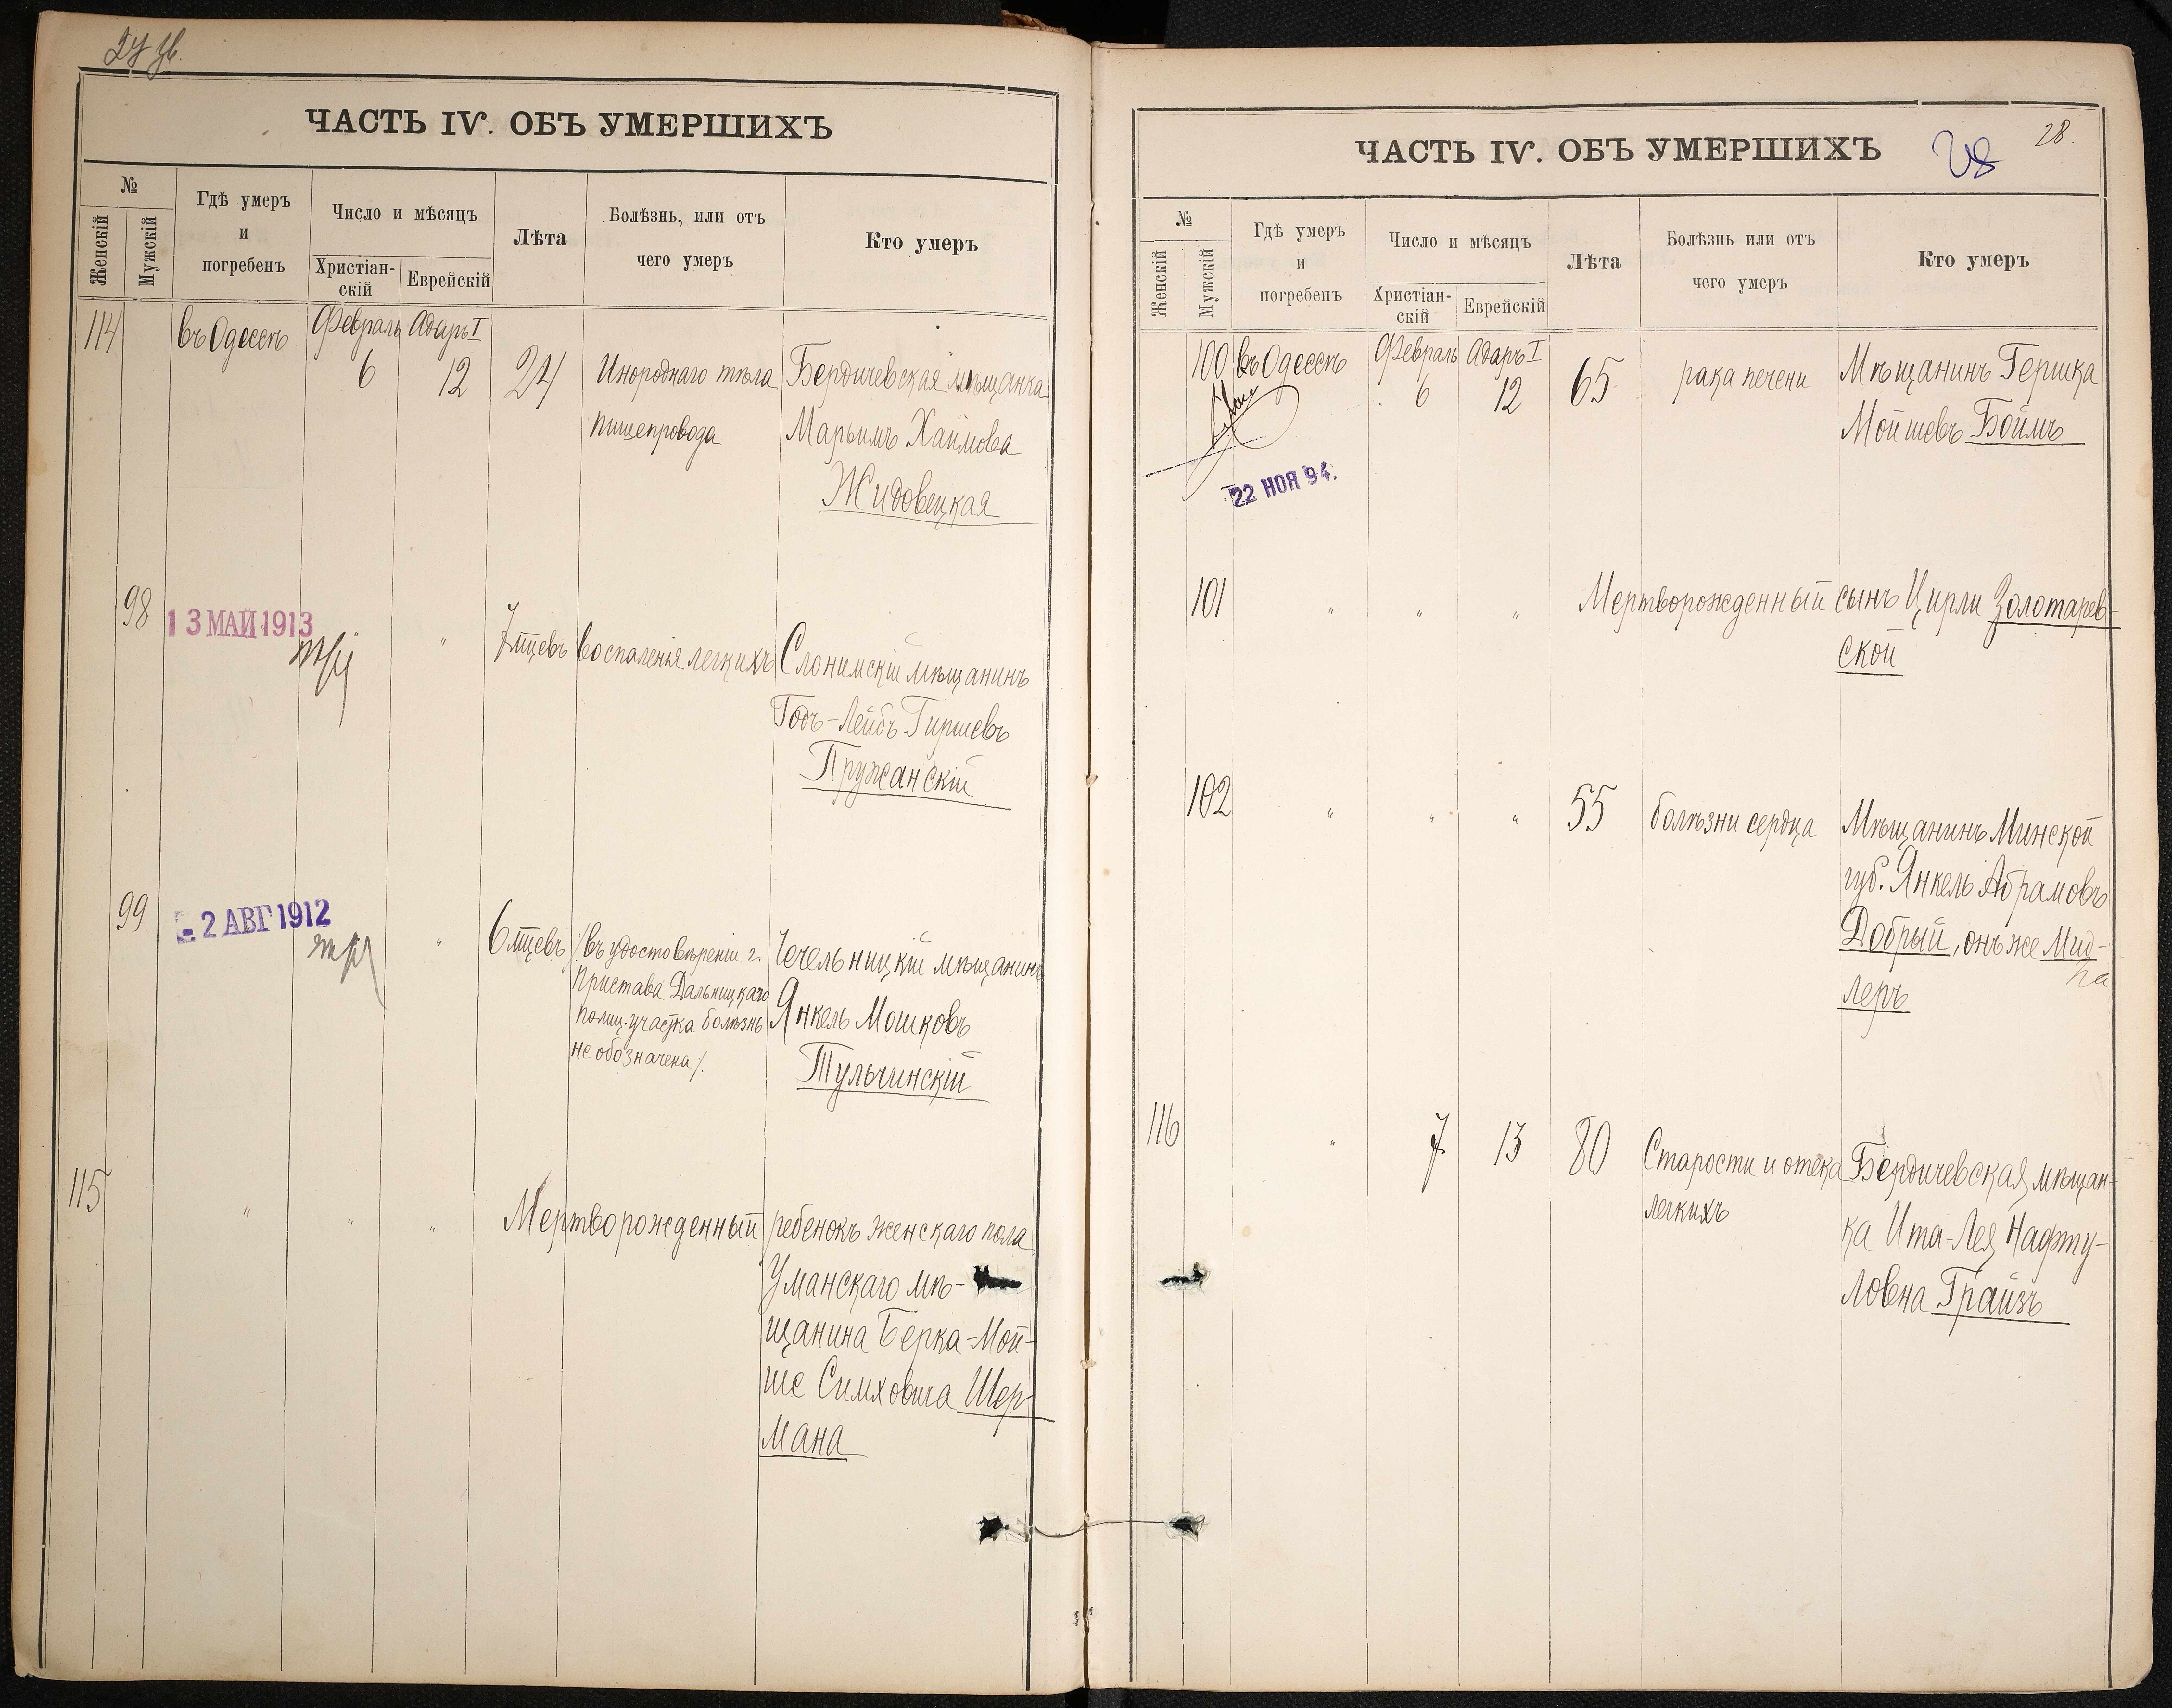 ЧАСТЬ IV. ОБЪ УМЕРШИХЪ
№
Женскій
Мужскій
Гдѣ умеръ
и
погребенъ
Число и мѣсяцъ
Христіан-
скій
Еврейскій
Лѣта
Болѣзнь, или отъ
чего умеръ
Кто умеръ
114 въ Одессѣ Февраль Адаръ I
6 12 24 Инороднаго тѣла Бердичевская мѣщанка
пищепровода Марьимъ Хаимова
Жидовецкая
98 13 МАЙ 1913 " 7 мцевъ воспаленія легкихъ Слонимскій мѣщанинъ
Годъ-Лейбъ Гиршевъ
Пружанскій
99 - 2 АВГ 1912 " 6 мцевъ /въ удостовѣреніи г. Чечельницкій мѣщанинъ
Пристава Дальницкаго
полиц. участка болѣзнь Янкель Мошковъ
не обозначена/. Тульчинскій
115 " " " Мертворожденный ребенокъ женскаго пола
Уманскаго мѣ-
щанина Берка-Мой-
ше Симховича Шер-
мана
28
28.
ЧАСТЬ IV. ОБЪ УМЕРШИХЪ
№
Женскій
Мужскій
Гдѣ умеръ
и
погребенъ
Число и мѣсяцъ
Христіан-
скій
Еврейскій
Лѣта
Болѣзнь или отъ
чего умеръ
Кто умеръ
100 въ Одессѣ Февраль Адаръ I
6 12 65 рака печени Мѣщанинъ Гершка
Мойшевъ Боймъ
22 НОЯ 94.
101 " " " Мертворожденный сынъ Цирли Золотарев-
ской
102 " " " 55 болѣзни сердца Мѣщанинъ Минской
губ. Янкель Абрамовъ
Добрый, онъ же Мид-
леръ
116 " 7 13 80 Старости и отека Бердичевская мѣщан-
легкихъ ка Ита-Лея Нафту-
ловна Грайзъ